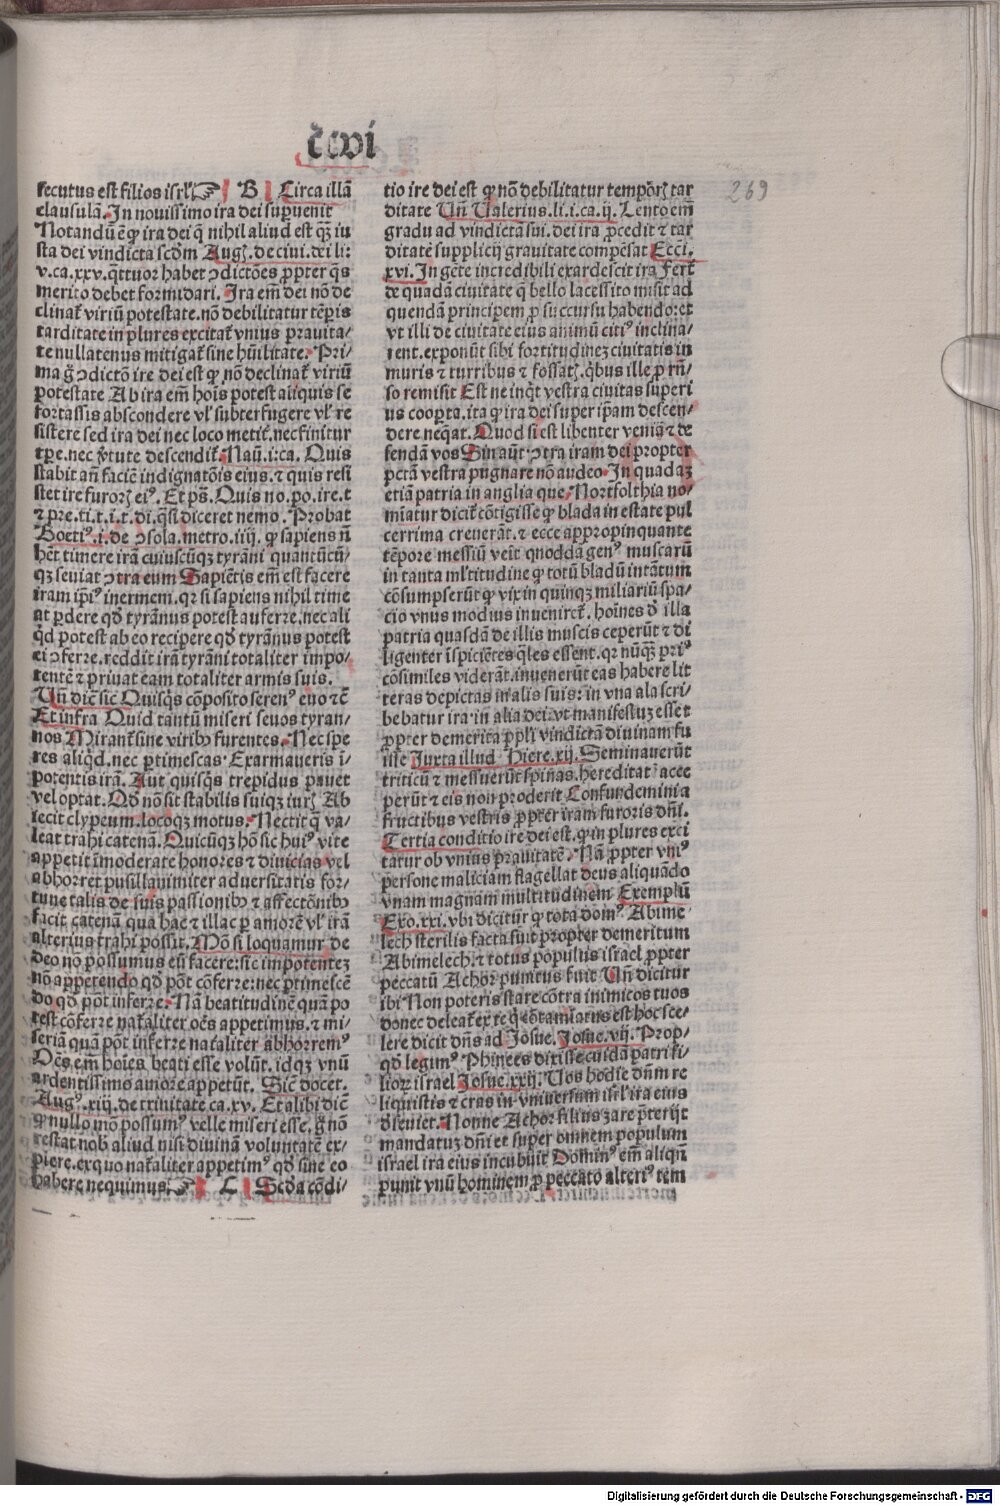 c̄cvvi
269
secutus est filios isrl' B Circa illã
clausulã. In nouissimo ira dei supuenit
Notandũ ē ꝙ ira dei q̃ nihil aliud est qʒ iu
sta dei vindicta scd̾m Augꝭ. de ciui. dei li:
v. ca. xxv. q̃ttuoꝛ habet ꝯdictões ꝓpter q̃s
merito debet formidari. Ira em̃ dei nõ de
clinat̃ viriũ potestate. nõ debilitatur tẽpis
tarditate in plures excitat̃ vnius prauita/
te nullatenus mitigat̃ sine hũilitate. Pri/
ma g̃ ꝯdictõ ire dei est ꝙ nõ declinat̃ viriũ
potestate Ab ira em̃ hoĩs potest aliquis se
fortassis abscondere vl' subterfugere vl' re
sistere sed ira dei nec loco metit̃. nec finitur
tp̃e. nec v̾tute descendit. Naũ. i: ca. Quis
stabit añ faciẽ indignatõis eius. ⁊ quis resi
stet ire furorꝝ ei⁹. Et ps̃. Quis no. po. ire. t
⁊ pre. ti. t. i. t. di. q̃si diceret nemo. Probat
Boeti⁹. i. de ꝯsola. metro. iiij. ꝙ sapiens ñ
h̃et timere irã cuiuscũqʒ tyrãni quantũcũ/
qʒ seuiat ꝯtra eum Sapiẽtis em̃ est facere
iram ip̃i⁹ inermem. qꝛ si sapiens nihil time
at ꝑdere qd̾ tyrãnus potest auferre. nec ali
q̃d potest ab eo recipere qd̾ tyrãnus potest
ei ꝯferre. reddit irã tyrãni totaliter impo/
tentẽ ⁊ priuat eam totaliter armis suis.
Vñ dic̃ sic̃ Quisq̃s cõposito seren⁹ euo ⁊c̃
Et infra Quid tantũ miseri seuos tyran/
nos Mirant̃ sine viribꝫ furentes. Nec spe
res aliq̃d. nec ꝑtimescas. Exarmaueris i/
potentis irã. Aut quisq̃s trepidus pauet
vel optat. Qd̾ nõ sit stabilis suiqʒ iurꝭ Ab
iecit clypeum. locoqʒ motus. Nectit q̃ va/
leat trahi catenã. Quicũqʒ hõ sic hui⁹ vite
appetit ĩmoderate honores ⁊ diuicias vel
abhorret pusillanimiter aduersitatis for/
tune talis de suis passionibꝫ ⁊ affectõnibꝫ
facit catenã qua hac ⁊ illac ꝑ amorẽ vl' irã
alterius trahi possit. Mõ si loquamur de
deo nõ possumus eũ facere: sic impotentez
nõ appetendo qd̾ põt cõferre: nec ꝑtimescẽ
do qd̾ põt inferre. Nã beatitudinẽ quã po
test cõferre nat̃aliter oẽs appetimus. ⁊ mi/
seriã quã põt inferre nat̃aliter abhorrem⁹
Oẽs em̃ hoĩes beati esse volũt. idqʒ vnũ
ardentissimo amore appetũt. Sic̃ docet.
Aug⁹. xiij. de trinitate ca. xv. Et alibi dic̃
ꝙ nullo mõ possum⁹ velle miseri esse. g̃ nõ
restat nob̃ aliud nisi diuinã voluntatẽ ex/
piere. ex quo nat̃aliter appetim⁹ qd̾ sine eo
habere nequimus. C Scd̾a cõdi/
tio ire dei est ꝙ nõ debilitatur tempoꝝ tar
ditate Vñ Valerius. li. i. ca. ij. Lento em̃
gradu ad vindictã sui. dei ira ꝓcedit ⁊ tar
ditatẽ supplicij grauitate compẽsat Ecci.
xvi. In gẽte incredibili exardescit ira Fert̃
de quadã ciuitate q̃ bello lacessito misit ad
quendã principem ꝓ succursu habendo: et
vt illi de ciuitate eius animũ citi⁹ inclina/
rent. exponũt sibi fortitudinez ciuitatis in
muris ⁊ turribus ⁊ fossatꝭ. q̃bus ille ꝓ rñ/
so remisit Est ne inq̃t vestra ciuitas superi
us coopta. ita ꝙ ira dei super ip̃am descen/
dere neq̃at. Quod si est libenter veniã ⁊ de
fendã vos Sin aũt ꝯtra iram dei propter
pctã vestra pugnare nõ audeo. In quadaʒ
etiã patria in anglia que. Nortfolthia no/
mĩatur dicit̃ cõtigisse ꝙ blada in estate pul
cerrima creuerãt. ⁊ ecce appropinquante
tẽpore messiũ veĩt quoddã gen⁹ muscarũ
in tanta ml'titudine ꝙ totũ bladũ intãtum
cõsumpserũt ꝙ vix in quinqʒ miliariũ spa/
cio vnus modius inueniret̃. hoĩnes d̾ illa
patria quasdã de illis muscis ceperũt ⁊ di
ligenter ĩspiciẽtes q̃les essent. qꝛ nũq̃ʒ pri⁹
cõsimiles viderãt. inuenerũt eas habere lit
teras depictas in alis suis: in vna ala scri/
bebatur ira. in alia dei. vt manifestuʒ esset
ꝓpter demerita ꝓpl'i vindictã diuinam fu
isse Juxta illud Hiere. xij. Seminauerũt
triticũ ⁊ messuerũt spinas. hereditatẽ acce
perũt ⁊ eis non proderit Confundemini a
fructibus vestris ꝓpter iram furoris dñi.
Tertia conditio ire dei est. ꝙ in plures exci
tatur ob vnius prauitatẽ. Nã ꝓpter vni⁹
persone maliciam flagellat deus aliquãdo
vnam magnam multitudinem Exemplũ
Exo. xxi. vbi dicitur ꝙ tota dom⁹ Abime
lech sterilis facta fuit propter demeritum
Abimelech. ⁊ totus populus israel ꝓpter
peccatũ Achor punitus fuit Vñ dicitur
ibi Non poteris stare cõtra inimicos tuos
donec deleat̃ ex te q̃ cõtamĩatus est hoc sce/
lere dicit dñs ad Josue. Josue. vij. Prop/
qd̾ legim⁹ Phinees dixisse cuidã patri fi/
lioꝝ israel Josue. xxij. Vos hodie dñm re
liquistis ⁊ cras in vniuersum isrl' ira eius
d̾seuiet. Nonne Achor filius zare p̃terijt
mandatuz dñi et super omnem populum
israel ira eius incubuit Domin⁹ em̃ aliqñ
punit vnũ hominem ꝓ peccato alteri⁹ tem
Digitalisierung gefördert durch die Deutsche Forschungsgemeinschaft - DFG